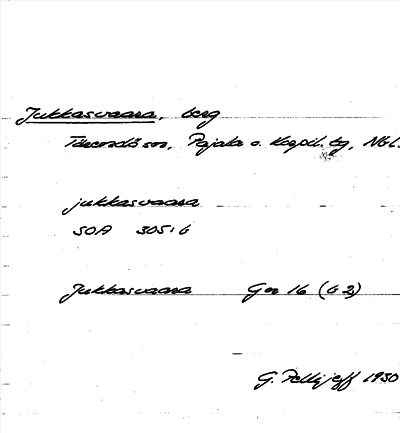 Jukkasvaara, berg
Tärendö sn, Pajala o. Korpil. tg, Nbl.
jukkasvaara
SOA 305:6
Jukkasvaara Gen 16 (b 2)
G. Pellijeff 1950